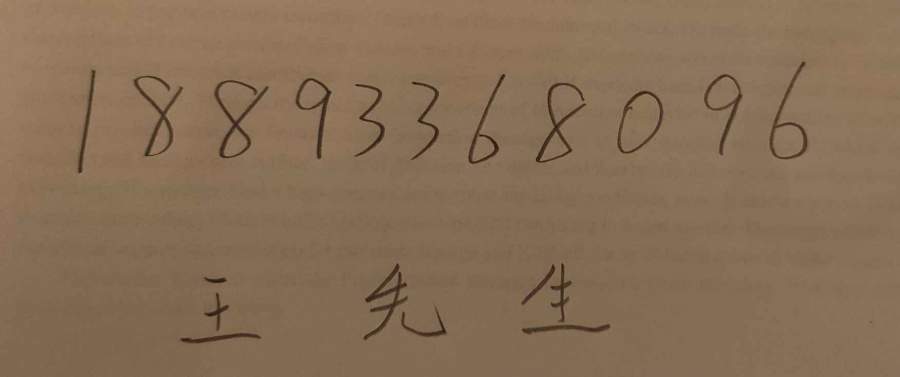 18893368096
王先生